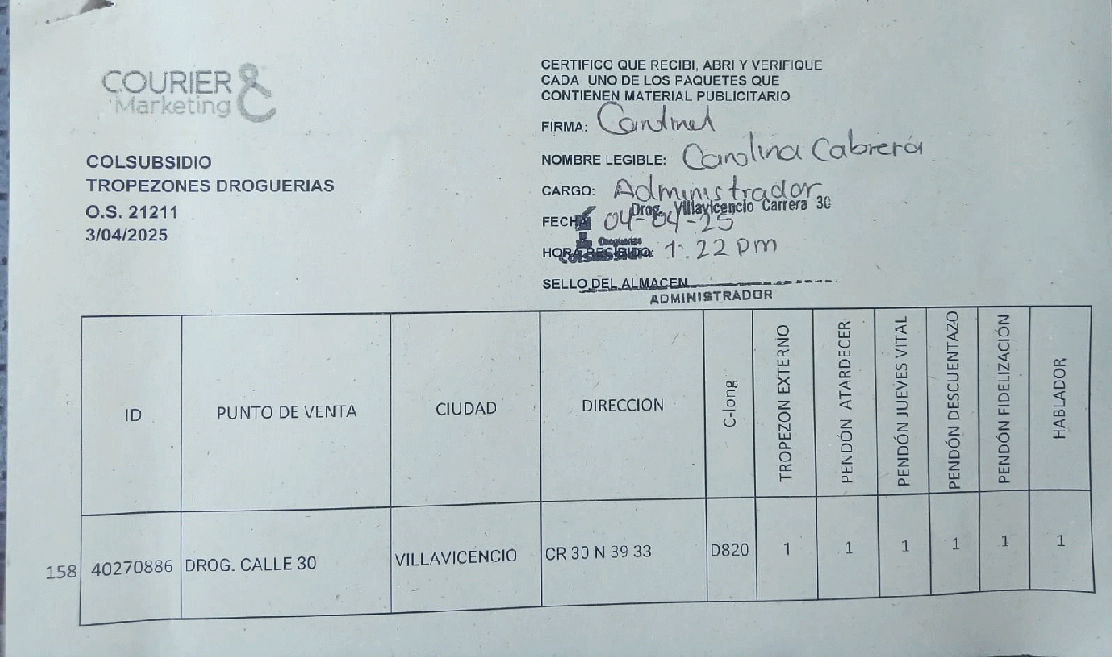 COURIER
Marketing
COLSUBSIDIO
TROPEZONES DROGUERIAS
O.S. 21211
3/04/2025
CERTIFICO QUE RECIBI, ABRI Y VERIFIQUE
CADA UNO DE LOS PAQUETES QUE
CONTIENEN MATERIAL PUBLICITARIO
FIRMA:
NOMBRE LEGIBLE: Carolina Cabrera
CARGO: Administrador
Drog. Villavicencio Carrera 30
FECHA 04-04-25
Droguerías
HORA RECIBIDO: 1:22 pm
SELLO DEL ALMACEN
ADMINISTRADOR
ID PUNTO DE VENTA CIUDAD DIRECCION C-long TROPEZON EXTERNO PENDÓN ATARDECER PENDÓN JUEVES VITAL PENDÓN DESCUENTAZO PENDÓN FIDELIZACIÓN HABLADOR
158 40270886 DROG. CALLE 30 VILLAVICENCIO CR 30 N 39 33 D820 1 1 1 1 1 1